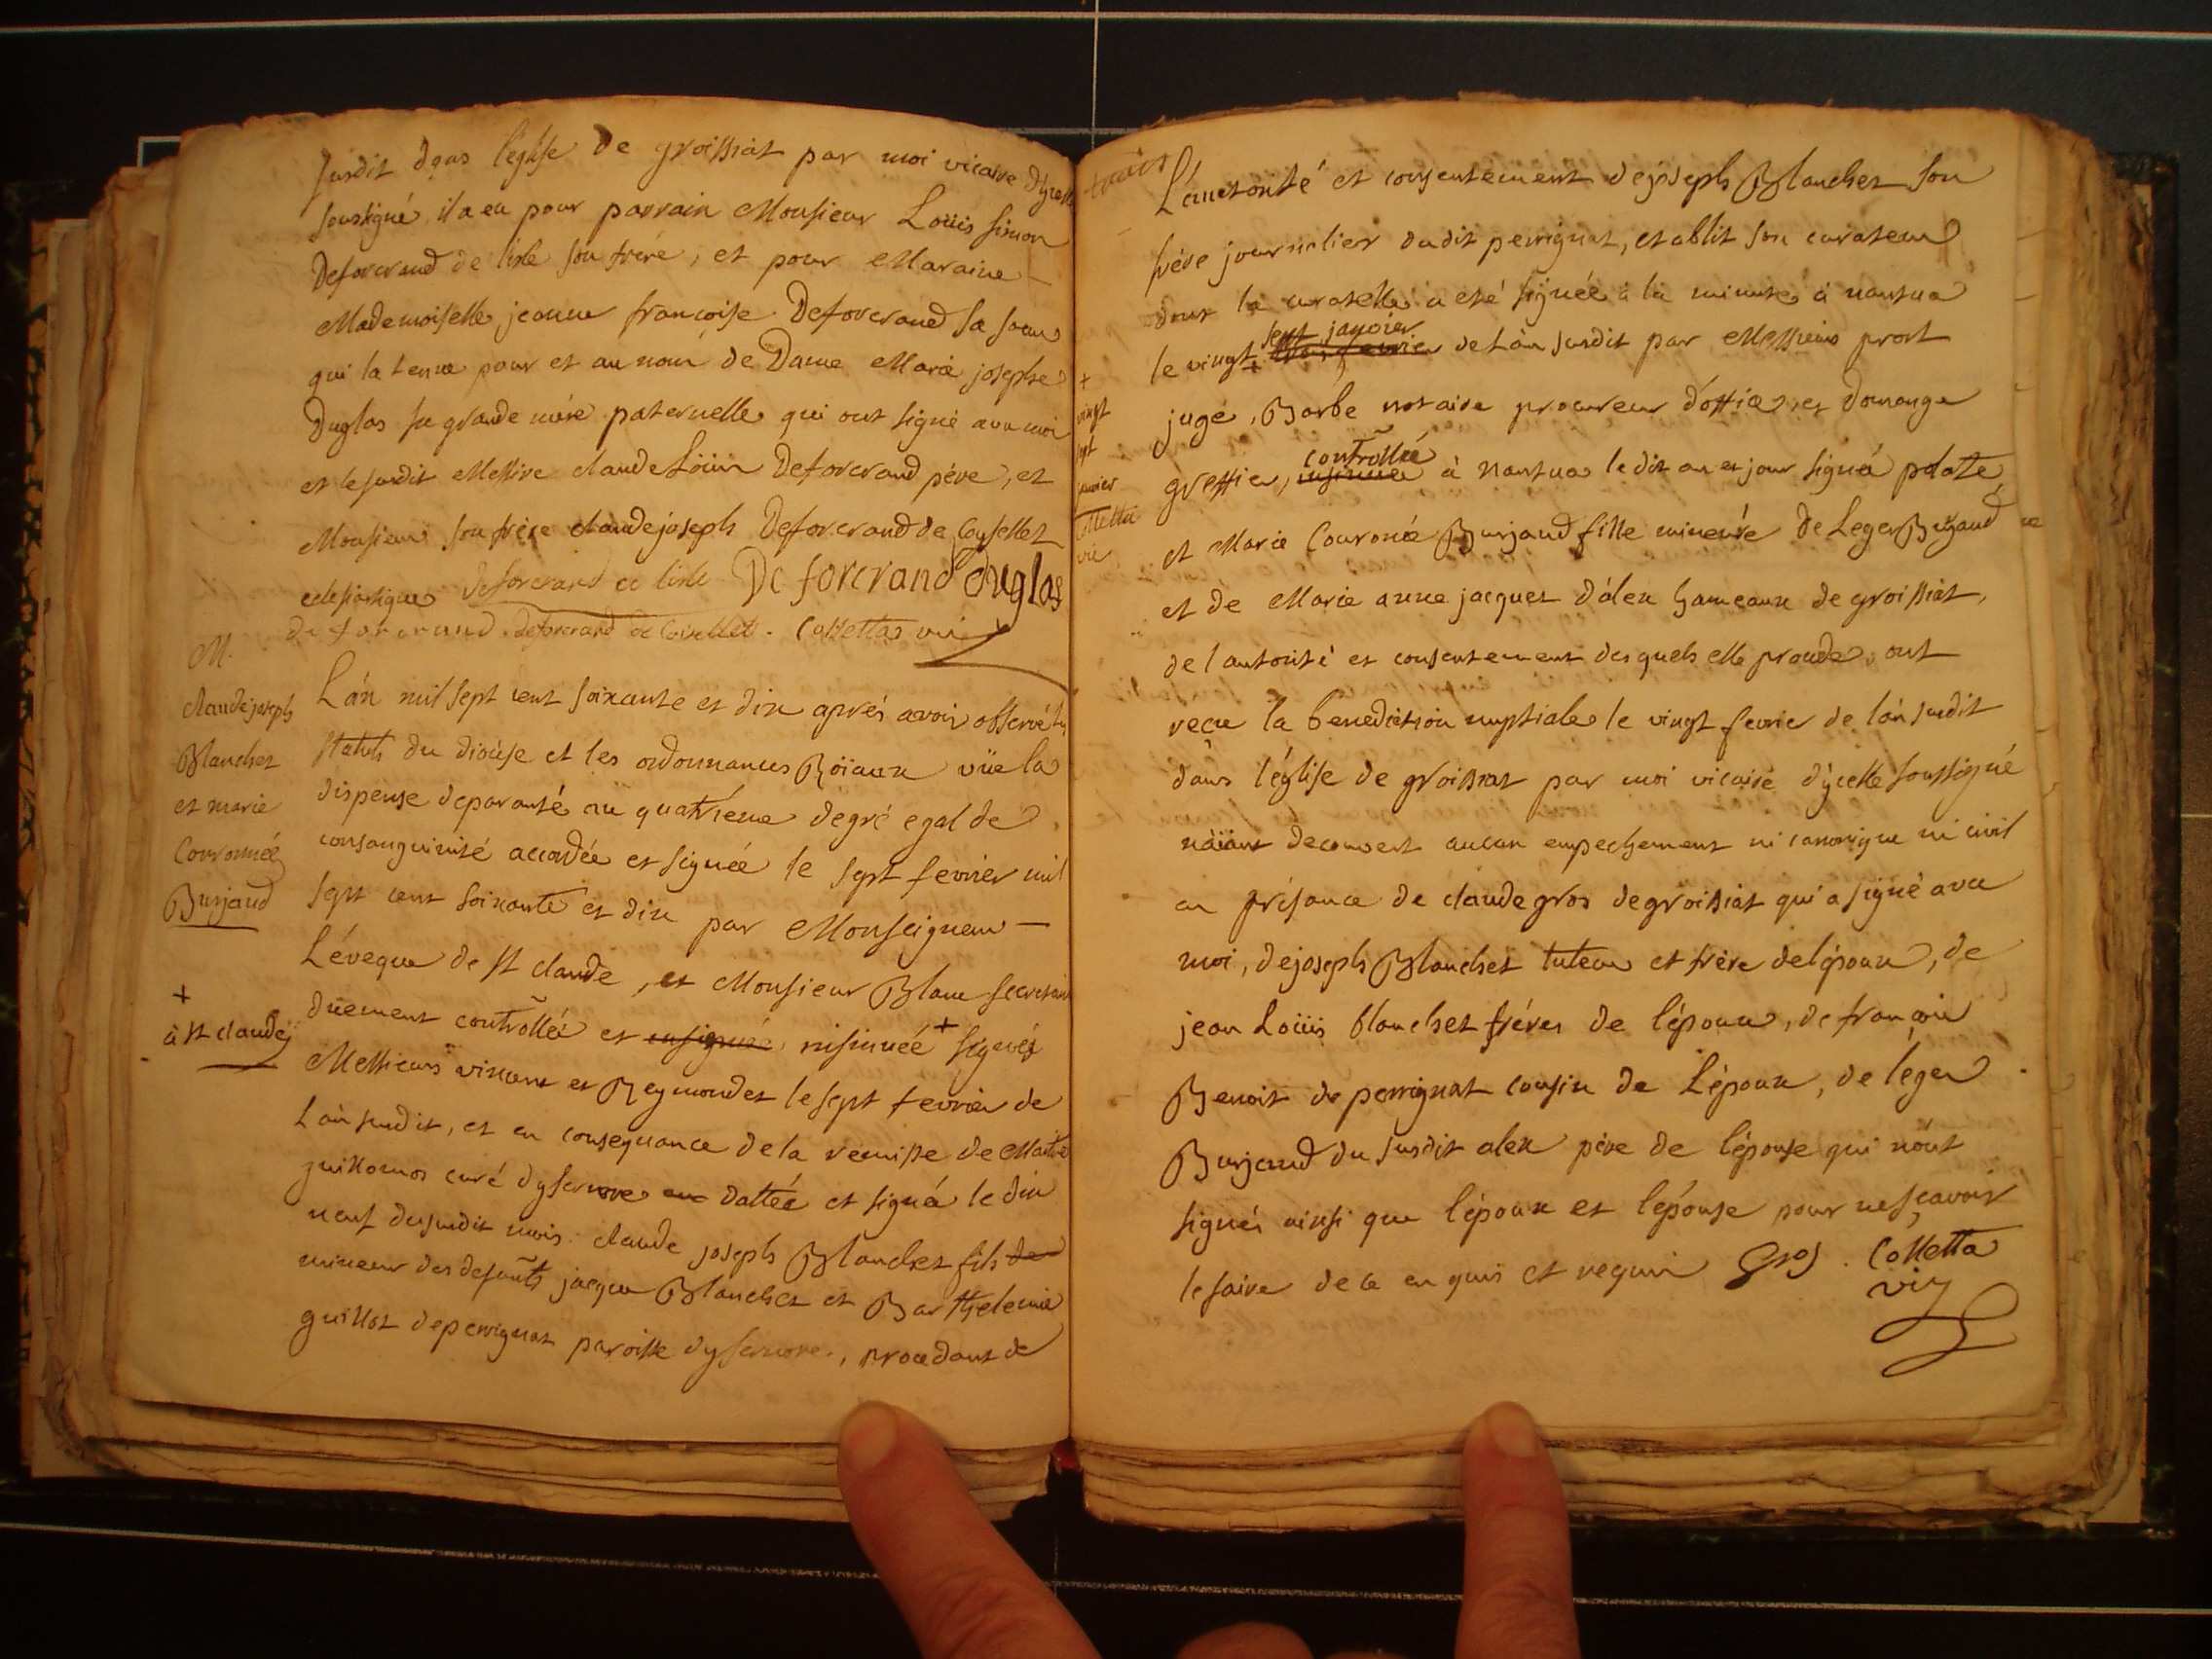 susdit dans l'église de groissiat par moi vicaire dycelle
soussigné, il a eu pour parrain Monsieur Loüis simon
Deforcrand de lisle son frere, et pour Maraine
Mademoiselle jeanne francoise Deforcrand sa soeur
qui la tenue pour et au nom de Dame Marie josephe
Duglas sa grande mére paternelle qui ont signé avec moi
et le susdit Messire claude Loüis Deforcrand pére, et
Monsieur son frére claude joseph Deforcrand de Coysellet
eclesiastique deforcrand de lisle De forcrand duglas
de forcrand . deforcrand de Coisellet . Colletta vic
M.
claude joseph
Blanchet
et marie
Couronnée
Burjaud
L'án mil sept cent soixante et dix aprés avoir observé les
statuts du diocése et les ordonnances Roïaux vüe la
dispense de paranté au quatriéme degré egal de
consanguinité accordée et signée le sept fevrier mil
sept cent soixante et dix par Monseigneur
L'éveque de st claude, et Monsieur Blanc secretaire
+
à st claude
düement controllée et insinuée + signés
Messieurs vincent et Reymondet le sept fevrier de
L'án susdit, et en consequance de la remisse de Maitre
guillomos curé dysernore dattée et signée le dix
neuf du susdit mois. claude joseph Blanchet fils de
mineur des defunts jacque Blanchet et Barthelemie
guillot de perrignat paroisse dysernore, procedant de
L'auctorité et consentement de joseph Blanchet son
frére journalier dudit perrignat, etablit son curateur
dont la curatelle a eté signée à la minute à nantua
sept janvier
le vingt + trois fevrier de L'án susdit par Messieurs prost
+
vingt
sept
janvier
Colletta
vic
juge, Barbe notaire procureur d'office, et Domange
controllée
greffier, insinuée à Nantua le dit an et jour signé
et Marie Couronée Burjaud fille mineure de Leger Burjaud
et de Marie anne jacquet d'alex hameaux de groissiat,
de l'autorité et consentement desquels elle procede, ont
reçu la benediction nuptiale le vingt fevrier de l'án susdit
dans l'église de groissiat par moi vicaire dÿcelle soussigné
n'äiant decouvert aucun empechement ni canonique ni civil
en présance de claude gros de groissiat qui a signé avec
moi, de joseph Blanchet tuteur et frére de l'époux, de
jean Loüis blanchet fréres de l'époux, de françois
Benoit de perrignat cousin de L'époux, de léger
Burjaud du susdit alex pére de l'épouse qui n'ont
signés ainsi que l'époux et l'épouse pour ne sçavoir
le faire de ce enquis et requis Gros . Colletta
vic